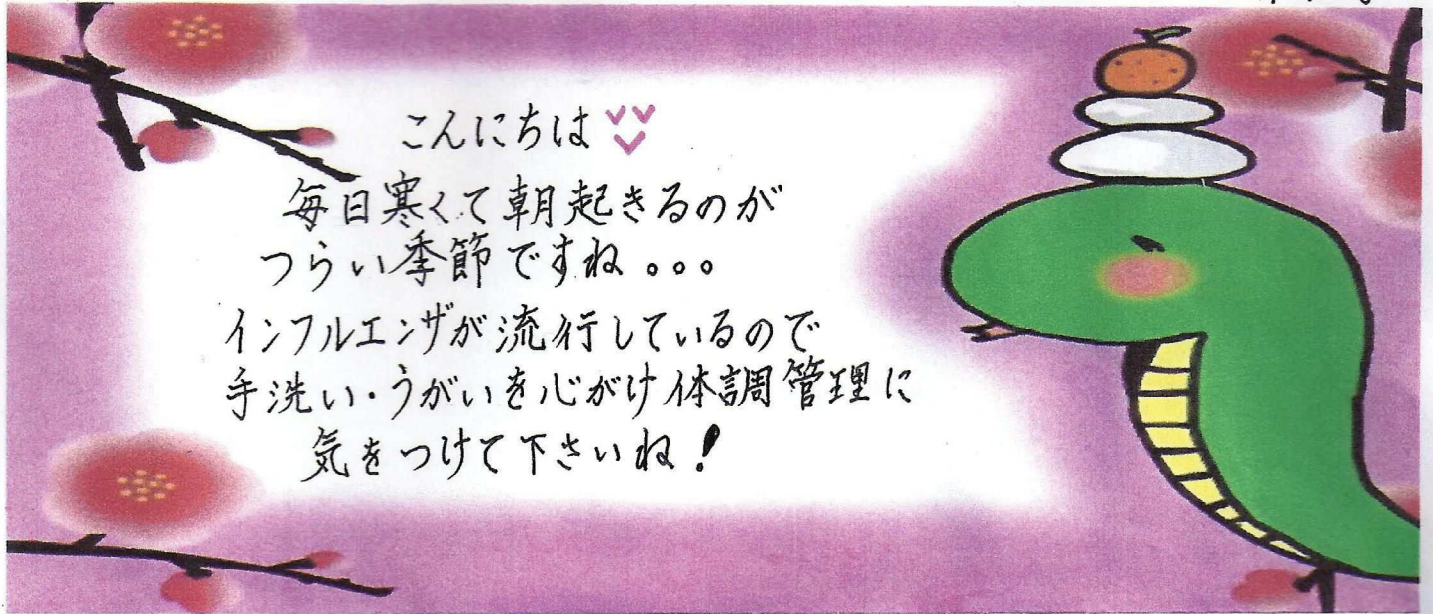 こんにちは
毎日寒くて朝起きるのが
つらい季節ですね。。。
インフルエンザが流行しているので
手洗い・うがいを心がけ体調管理に
気をつけて下さいね!